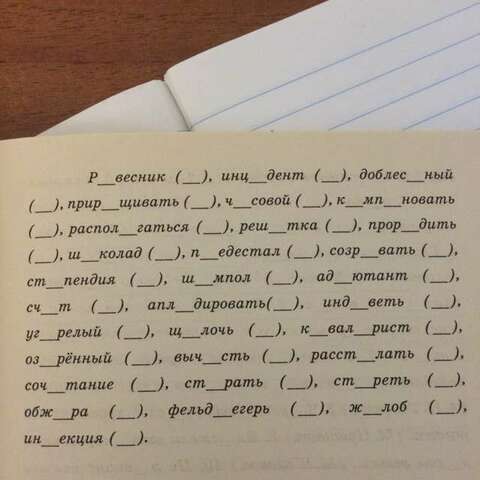 Р__весник (__), инц__дент (__), доблес__ный
(__), прир__щивать (__), ч__совой (__), к__мп__новать
(__), распол__гаться (__), реш__тка (__), прор__дить
(__), ш__колад (__), п__едестал (__), созр__вать (__),
ст__пендия (__), ш__мпол (__), ад__ютант (__),
сч__т (__), апл__дировать(__), инд__веть (__),
уг__релый (__), щ__лочь (__), к__вал__рист (__),
оз__рённый (__), выч__сть (__), расст__лать (__),
соч__тание (__), ст__рать (__), ст__реть (__),
обж__ра (__), фельд__егерь (__), ж__лоб (__),
ин__екция (__).